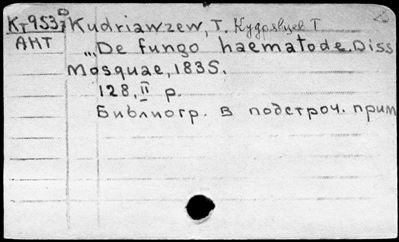 Кт953 Kudriawzew, T. Кудрявцев Т
АНТ „De fungo haematode. Diss
Mosquae, 1835.
128, II p.
Библиогр. в подстроч. прим